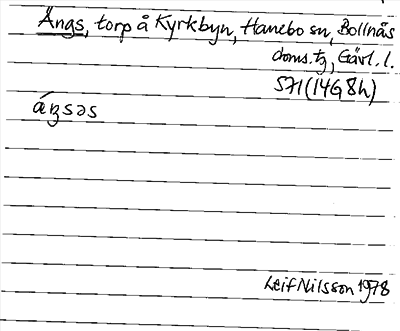 Ängs, torp å Kyrkbyn, Hanebo sn, Bollnäs
doms.tg, Gävl. l.
S71 (14G 8h)
áŋsəs
Leif Nilsson 1978